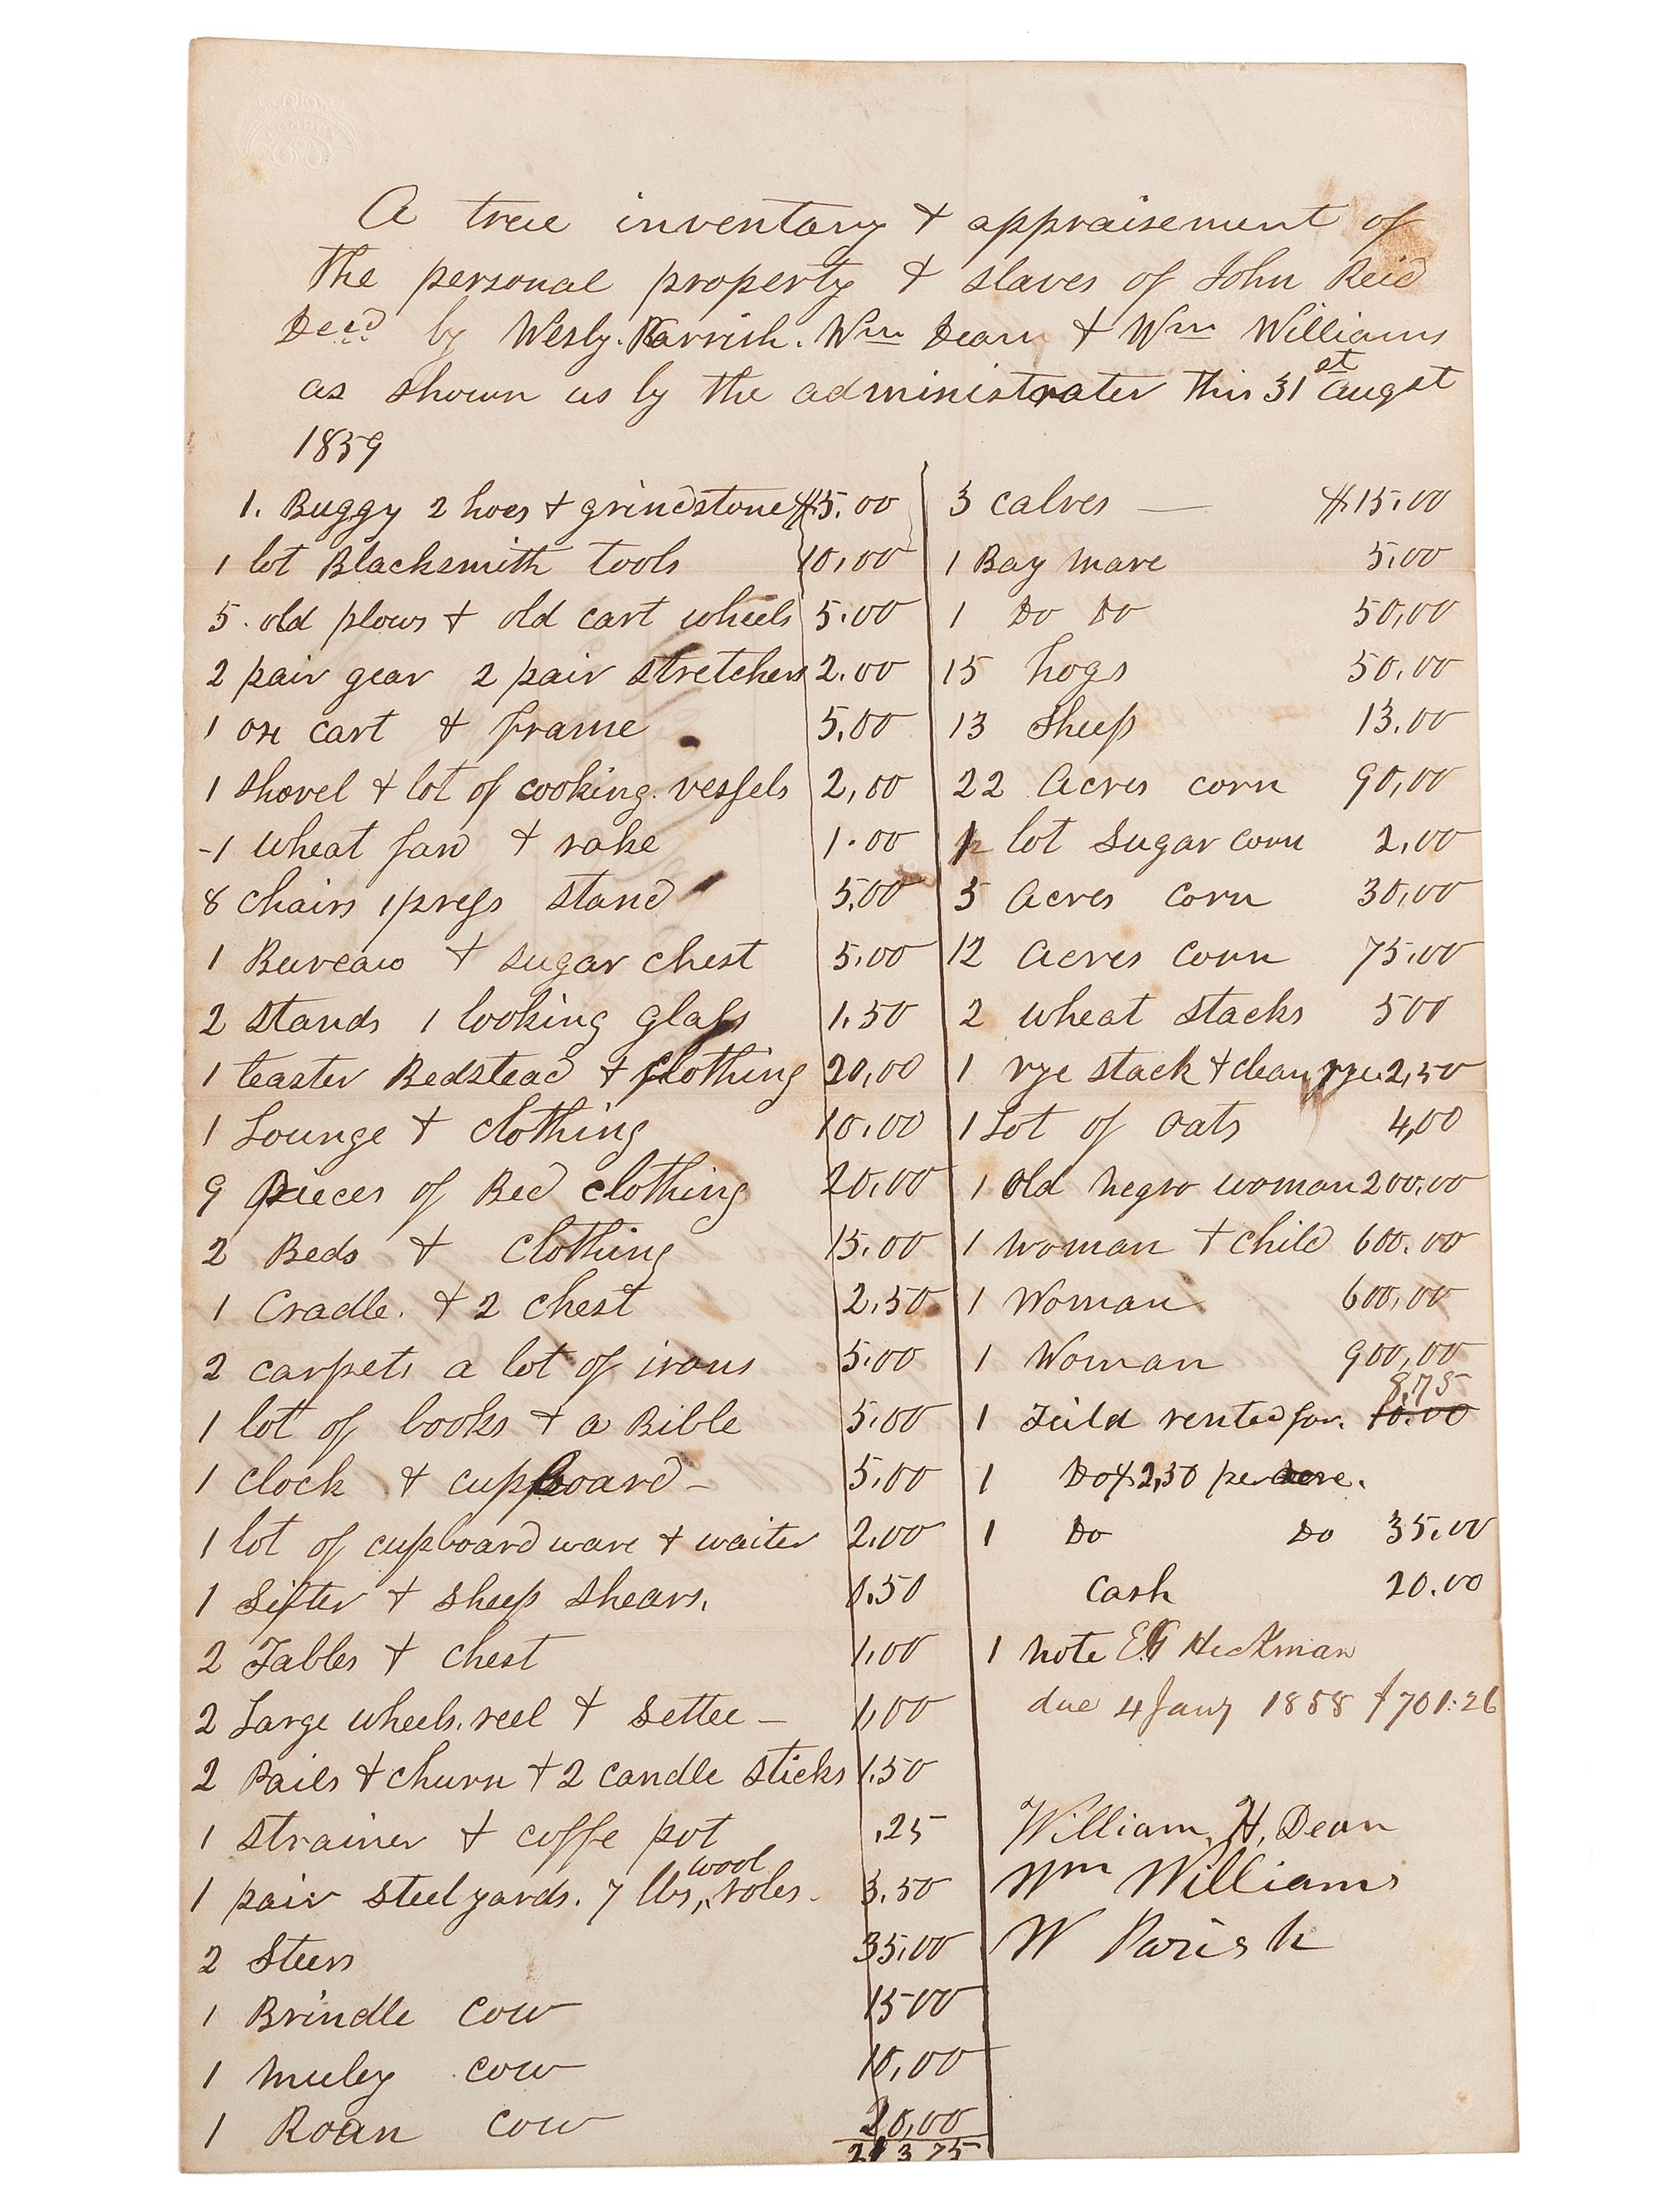 A true inventory & appraisement of
the personal property & slaves of John Reid
Decd by Wesly. Parrish. Wm Dean & Wm Williams
as shown us by the administrater this 31st augst
1859
1. Buggy 2 hoes & grindstone $5.00
1 lot Blacksmith tools 10,00
5. old plows & old cart wheels 5.00
2 pair gear 2 pair stretchers 2.00
1 ox cart & frame 5,00
1 shovel & lot of cooking vessels 2,00
-1 wheat fan & rake 1.00
8 chairs 1 press stand 5,00
1 Bureau & sugar chest 5,00
2 stands 1 looking glass 1.50
1 teaster Bedstead & clothing 20,00
1 Lounge & clothing 10.00
9 pieces of Bed clothing 20,00
2 Beds & clothing 15.00
1 Cradle. & 2 chest 2.50
2 carpets a lot of irons 5.00
1 lot of books & a Bible 5,00
1 clock & cupboard - 5,00
1 lot of cupboard ware & waiter 2.00
1 Sifter & sheep shears. 0.50
2 Tables & chest 1,00
2 Large wheels, reel & settee - 1,00
2 Pails & churn & 2 candle sticks 1.50
1 strainer & coffe pot .25
1 pair steel yards. 7 lbs, wool roles. 3.50
2 Steers 35,00
1 Brindle cow 1500
1 muley cow 10,00
1 Roan cow 20,00
213 75
3 calves — $15.00
1 Bay mare 5.00
1 Do Do 50,00
15 hogs 50.00
13 Sheep 13.00
22 Acres corn 90,00
1 lot Sugar corn 2,00
5 Acres corn 30,00
12 Acres corn 75.00
2 wheat stacks 500
1 rye stack & clean rye. 2,50
1 Lot of oats 4,00
1 old negro woman 200,00
1 woman & child 600.00
1 Woman 600,00
1 Woman 900,00
8,75
1 Feild rented for. 10.00
1 Do $2,50 per acre.
1 Do Do 35.00
Cash 20.00
1 note Heckman
due 4 Jany 1858 $701.26
William, H, Dean
Wm Williams
W Parish